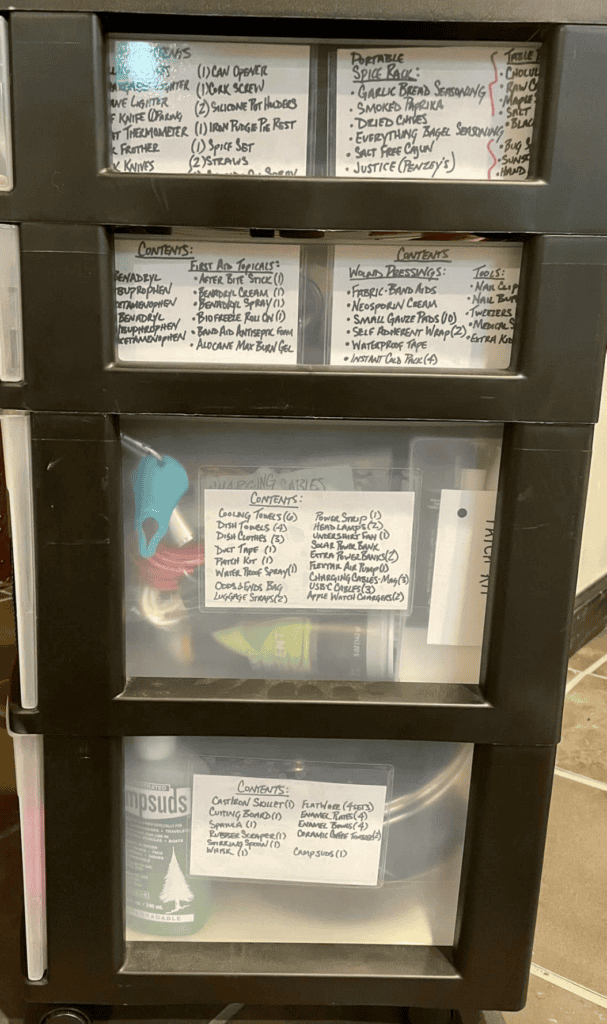 (1) CAN OPENER
LIGHTER (1) CORK SCREW
LIGHTER (2) SILICONE POT HOLDERS
KNIFE (1) IRON PUDGIE PIE REST
THERMOMETER (1) SPICE SET
FROTHER (2) STRAWS
KNIVES
PORTABLE
SPICE RACK:
• GARLIC BREAD SEASONING
• SMOKED PAPRIKA
• DRIED CHIVES
• EVERYTHING BAGEL SEASONING
• SALT FREE CAJUN
• JUSTICE (PENZEY'S)
TABLE
• CHOLUL
• RAW
• MAPLE
• SALT
• BLAC
• BUG S
• SUNS
• HAND
CONTENTS:
FIRST AID TOPICALS:
BENADRYL
IBUPROPHEN
BENADRYL
• AFTER BITE STICK (1)
• BENADRYL CREAM (1)
• BENADRYL SPRAY (1)
• BIOFREEZE ROLL ON (1)
• BAND AID ANTISEPTIC FOAM
• ALOCANE MAX BURN GEL
CONTENTS
WOUND DRESSINGS:
• FABRIC BAND AIDS
• NEOSPORIN CREAM
• SMALL GAUZE PADS (10)
• SELF ADHERENT WRAP (2)
• WATERPROOF TAPE
• INSTANT COLD PACK (4)
TOOLS:
• NAIL CLIP
• NAIL
• TWEEZERS
• MEDICAL S
• EXTRA
CHARGING CABLES
CONTENTS:
COOLING TOWELS (6)
DISH TOWELS (4)
DISH CLOTHES (3)
DUCT TAPE (1)
PATCH KIT (1)
WATER PROOF SPRAY (1)
ODDS & ENDS BAG
LUGGAGE STRAPS (2)
POWER STRIP (1)
HEADLAMPS (2)
UNDERSHIRT FAN (1)
SOLAR POWER BANK
EXTRA POWER BANKS (2)
FLEXTAIR AIR PUMP (1)
CHARGING CABLES-MAG (3)
USB-C CABLES (3)
APPLE WATCH CHARGERS (2)
PATCH KIT
CONTENTS:
CAST IRON SKILLET (1)
CUTTING BOARD (1)
SPATULA (1)
RUBBER SCRAPER (1)
STIRRING SPOON (1)
WHISK (1)
FLATWARE (4 SETS)
ENAMEL PLATES (4)
ENAMEL BOWLS (4)
CERAMIC COFFEE TUMBLERS (2)
CAMPSUDS (1)
mpsuds